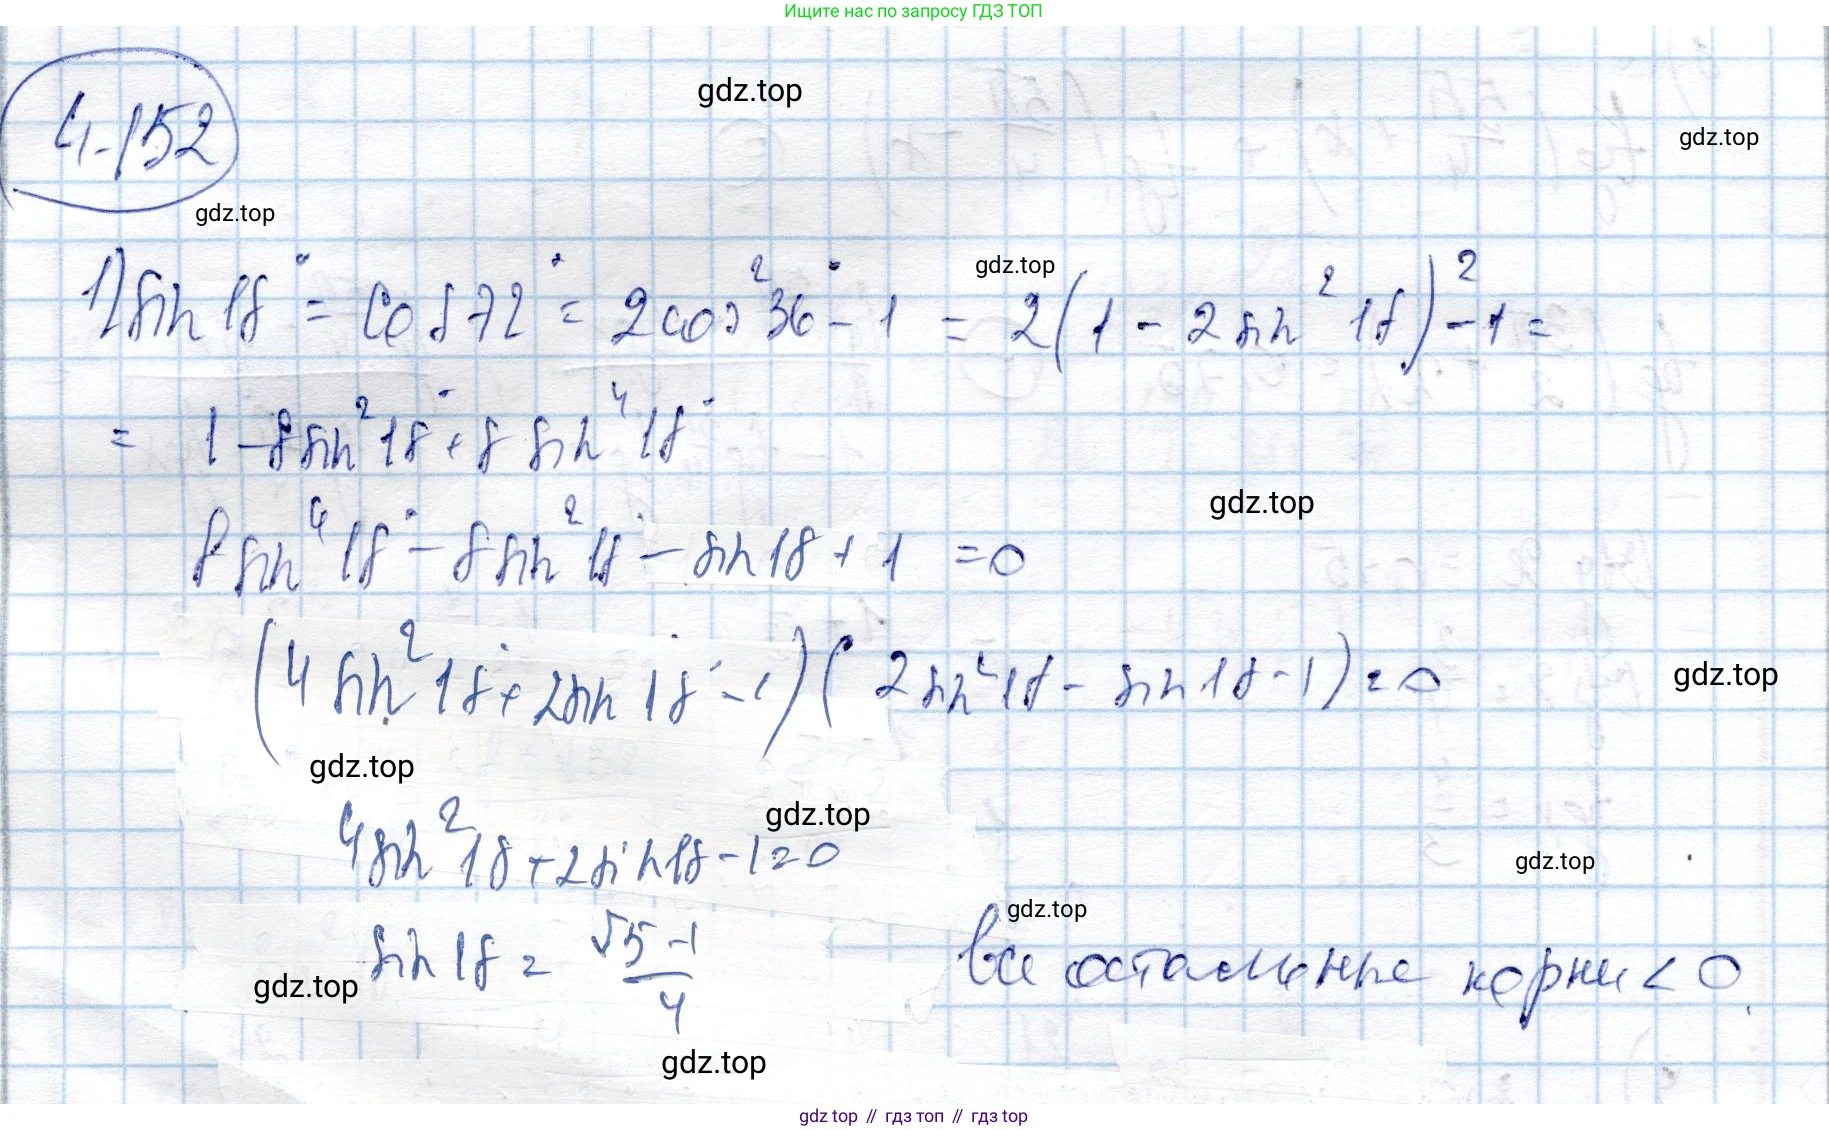 Ищите нас по запросу ГДЗ ТОП
gdz.top
4.152
gdz.top
gdz.top
gdz.top
1) sin 18° = cos 72° = 2cos² 36° - 1 = 2(1 - 2 sin² 18)² - 1 =
= 1 - 8 sin² 18° + 8 sin⁴ 18°
gdz.top
8 sin⁴ 18° - 8 sin² 18° - sin 18 + 1 = 0
(4 sin² 18° + 2 sin 18° - 1)(2 sin² 18 - sin 18 - 1) = 0
gdz.top
gdz.top
gdz.top
4 sin² 18 + 2 sin 18 - 1 = 0
gdz.top
gdz.top
sin 18 = (√5 - 1)/4 все остальные корни < 0.
gdz.top
gdz.top
gdz top // гдз топ // гдз top